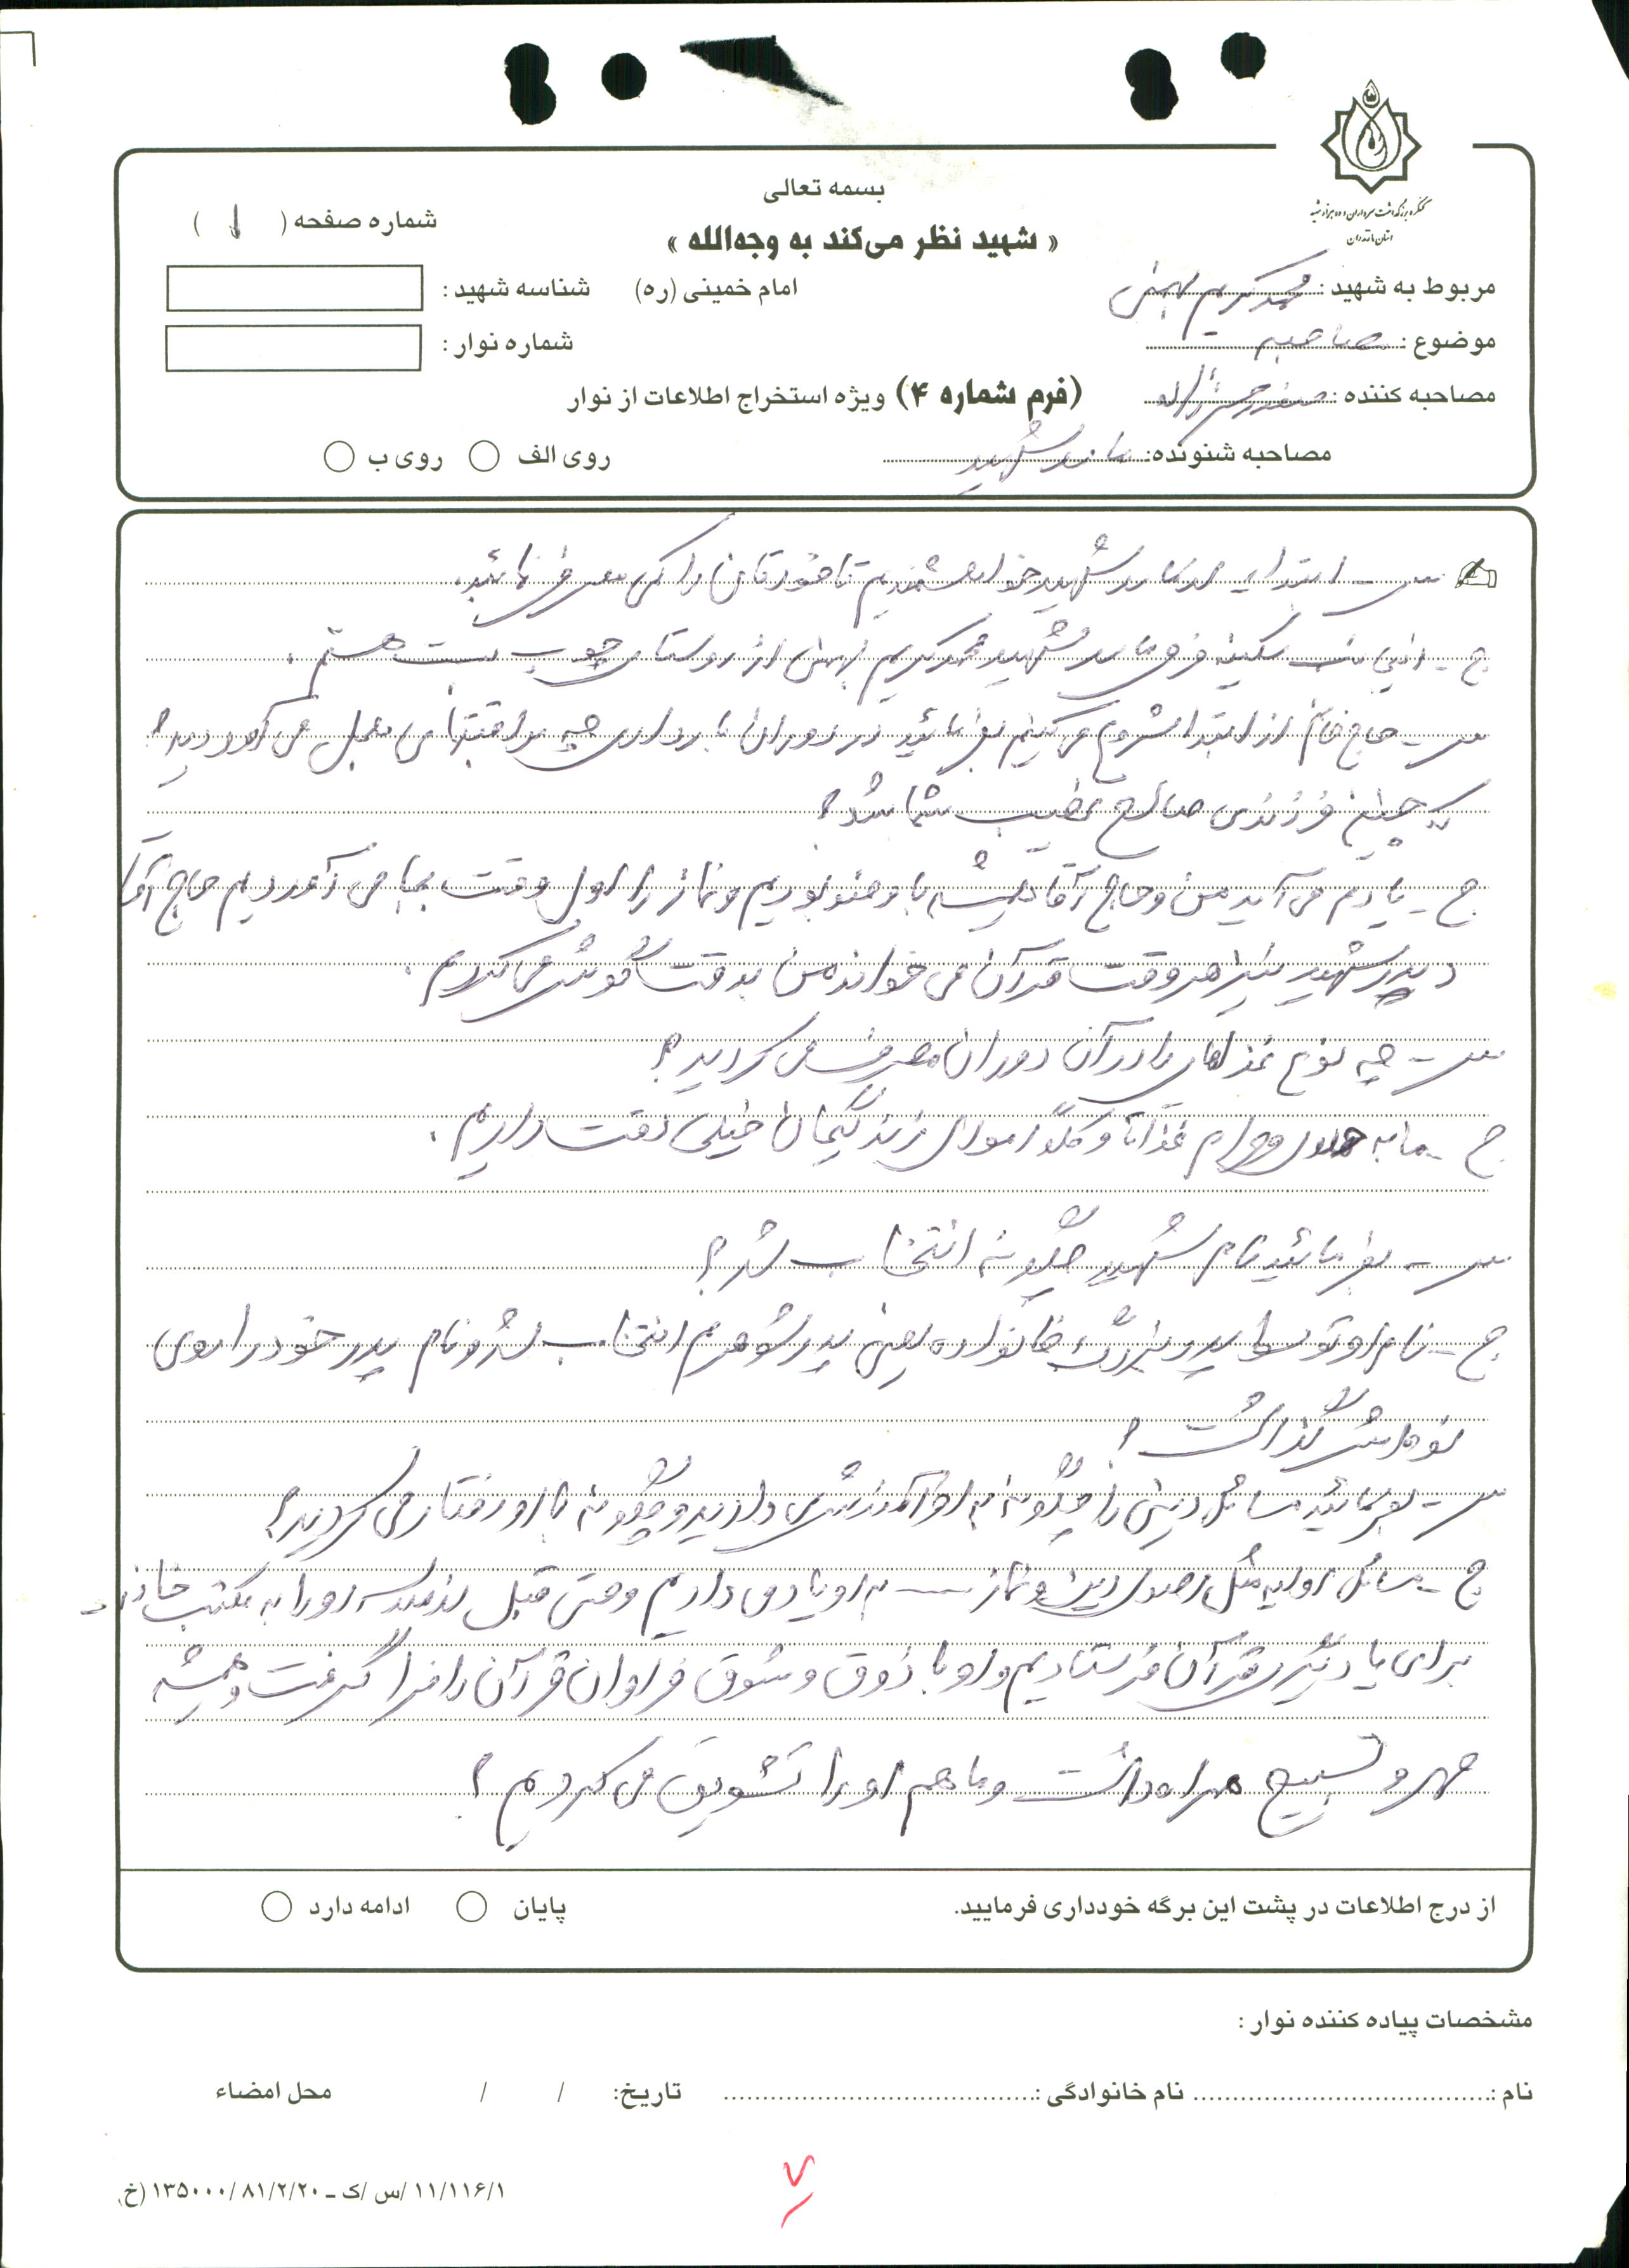 کنگره بزرگداشت سرداران و ده هزار شهید
استان مازندران
بسمه تعالی
« شهید نظر می‌کند به وجه‌الله »
شماره صفحه ( ۱ )
مربوط به شهید : محمد کریم بهمنی
امام خمینی (ره)
شناسه شهید :
موضوع : مصاحبه
شماره نوار :
مصاحبه کننده :
(فرم شماره ۴) ویژه استخراج اطلاعات از نوار
مصاحبه شنونده: مادر شهید
روی الف
روی ب
س - ابتدا از مادر شهید خواهشمندیم تا خودتان را معرفی فرمائید.
ج - اینجانب سکینه مادر شهید محمد کریم بهمنی از روستای چوب بست هستم .
س - حاج خانم از ابتدا شروع می کنیم بفرمائید در دوران بارداری چه مراقبتهایی بعمل می آوردید؟
که چنین فرزندی صالح نصیب شما شد؟
ج - یادم می آید من و حاج آقا همیشه با وضو بودیم و نماز را اول وقت بجا می آوردیم حاج آقا
پدر شهید نیز هر وقت قرآن می خواند من به دقت گوش می کردم .
س - چه نوع غذاهای را در آن دوران مصرف می کردید؟
ج - ما به حلال و حرام غذا و کلاً اموال زندگیمان خیلی دقت داریم .
س - بفرمائید نام شهید چگونه انتخاب شد؟
ج - نام او توسط پدر بزرگ خانواده یعنی پدر شوهرم انتخاب شد و نام پدر خود را روی
نوه اش گذاشت ؟
س - بفرمائید مسائل دینی را چگونه به او آموزش دادید و چگونه با او رفتار می کردید؟
ج - مسائل اولیه مثل اصول دین و نماز ... به او یاد می دادیم و حتی قبل از مدرسه او را به مکتب خانه
برای یادگیری قرآن فرستادیم و او با ذوق و شوق فراوان قرآن را فرا گرفت و همیشه
مهر و تسبیح همراه داشت و ما هم او را تشویق می کردیم ؟
از درج اطلاعات در پشت این برگه خودداری فرمایید.
پایان
ادامه دارد
مشخصات پیاده کننده نوار :
نام : نام خانوادگی : تاریخ: / / محل امضاء
۱۱/۱۱۶/۱ /س /ک – ۸۱/۲/۲۰ /۱۳۵۰۰۰ (خ)
۷